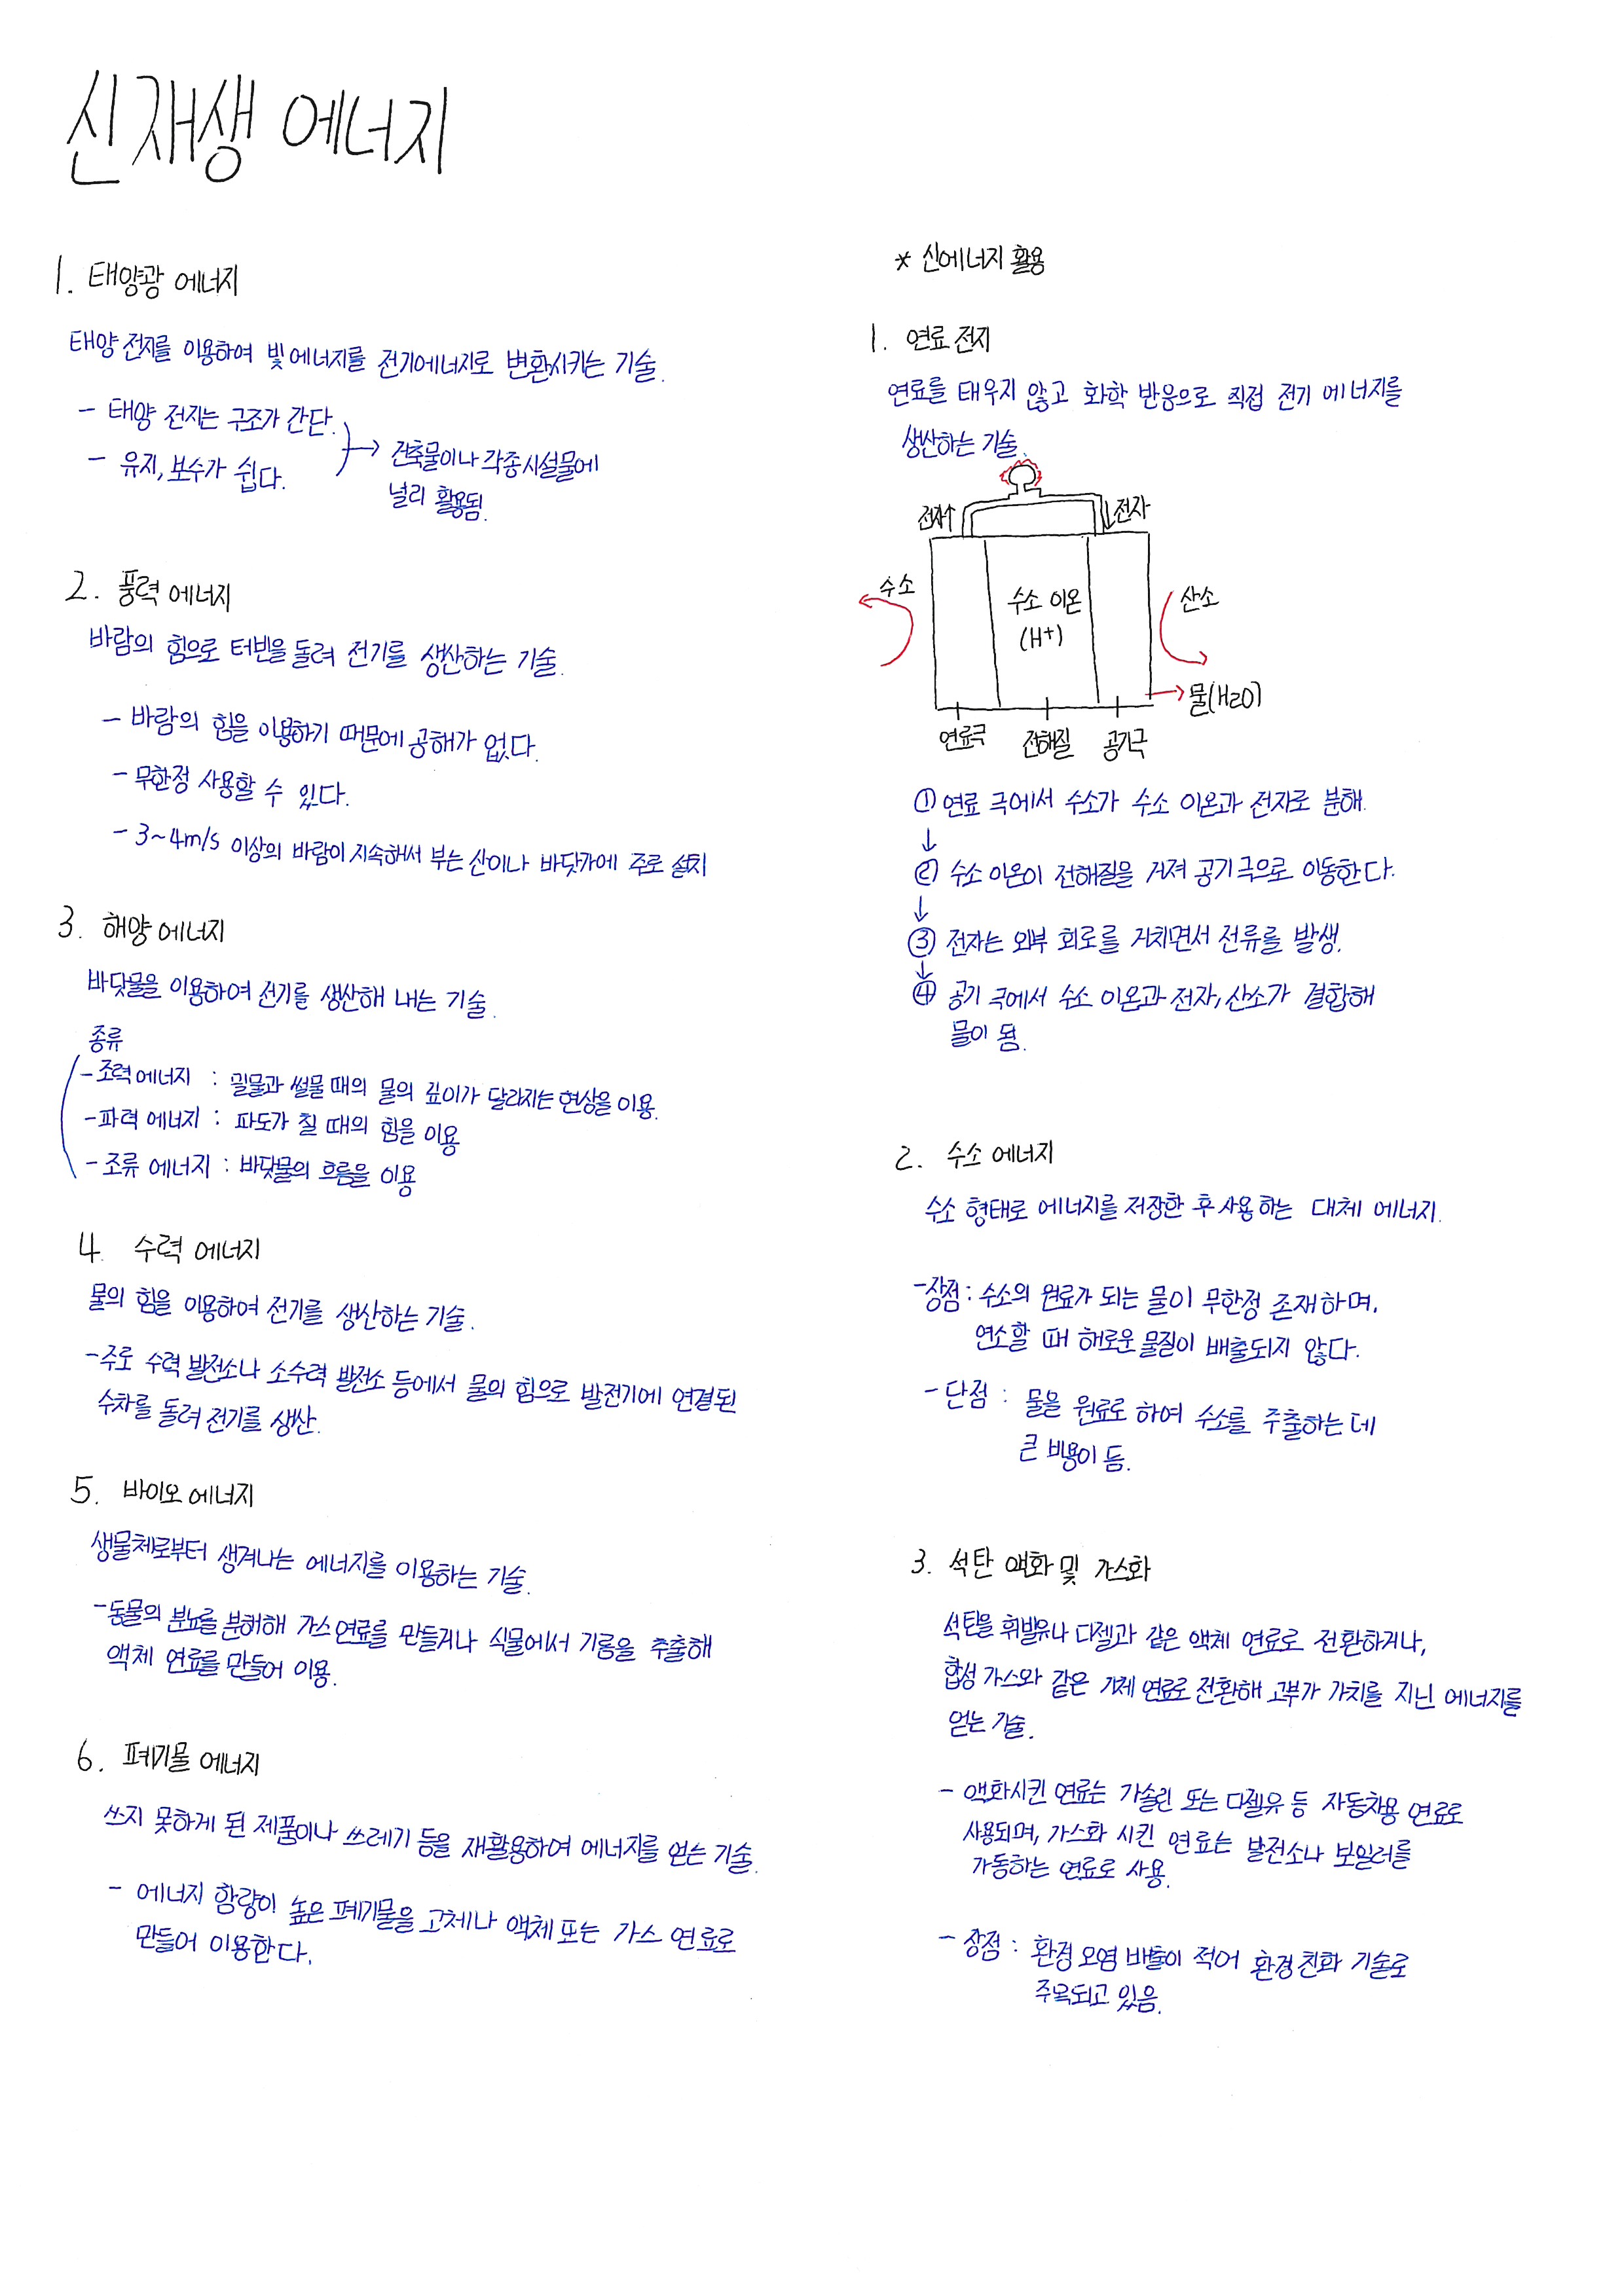 신재생 에너지
1. 태양광 에너지
태양 전지를 이용하여 빛에너지를 전기에너지로 변환시키는 기술.
- 태양 전지는 구조가 간단.
- 유지, 보수가 쉽다.
→ 건축물이나 각종시설물에
널리 활용됨.
2. 풍력 에너지
바람의 힘으로 터빈을 돌려 전기를 생산하는 기술.
- 바람의 힘을 이용하기 때문에 공해가 없다.
- 무한정 사용할 수 있다.
- 3~4m/s 이상의 바람이 지속해서 부는 산이나 바닷가에 주로 설치
3. 해양 에너지
바닷물을 이용하여 전기를 생산해 내는 기술.
종류
- 조력 에너지 : 밀물과 썰물 때의 물의 깊이가 달라지는 현상을 이용.
- 파력 에너지 : 파도가 칠 때의 힘을 이용
- 조류 에너지 : 바닷물의 흐름을 이용
4. 수력 에너지
물의 힘을 이용하여 전기를 생산하는 기술.
- 주로 수력 발전소나 소수력 발전소 등에서 물의 힘으로 발전기에 연결된
수차를 돌려 전기를 생산.
5. 바이오 에너지
생물체로부터 생겨나는 에너지를 이용하는 기술.
- 동물의 분뇨를 분해해 가스연료를 만들거나 식물에서 기름을 추출해
액체 연료를 만들어 이용.
6. 폐기물 에너지
쓰지 못하게 된 제품이나 쓰레기 등을 재활용하여 에너지를 얻는 기술.
- 에너지 함량이 높은 폐기물을 고체나 액체 또는 가스 연료로
만들어 이용한다.
* 신에너지 활용
1. 연료 전지
연료를 태우지 않고 화학 반응으로 직접 전기 에너지를
생산하는 기술.
전자↑
↓전자
수소
수소 이온
(H+)
산소
→ 물(H2O)
연료극
전해질
공기극
① 연료 극에서 수소가 수소 이온과 전자로 분해.
↓
② 수소 이온이 전해질을 거쳐 공기 극으로 이동한다.
↓
③ 전자는 외부 회로를 거치면서 전류를 발생.
↓
④ 공기 극에서 수소 이온과 전자, 산소가 결합해
물이 됨.
2. 수소 에너지
수소 형태로 에너지를 저장한 후 사용하는 대체 에너지.
- 장점 : 수소의 원료가 되는 물이 무한정 존재하며,
연소할 때 해로운 물질이 배출되지 않다.
- 단점 : 물을 원료로 하여 수소를 추출하는 데
큰 비용이 듬.
3. 석탄 액화 및 가스화
석탄을 휘발유나 디젤과 같은 액체 연료로 전환하거나,
합성 가스와 같은 기체 연료로 전환해 고부가 가치를 지닌 에너지를
얻는 기술.
- 액화시킨 연료는 가솔린 또는 디젤유 등 자동차용 연료로
사용되며, 가스화 시킨 연료는 발전소나 보일러를
가동하는 연료로 사용.
- 장점 : 환경 오염 배출이 적어 환경 친화 기술로
주목되고 있음.